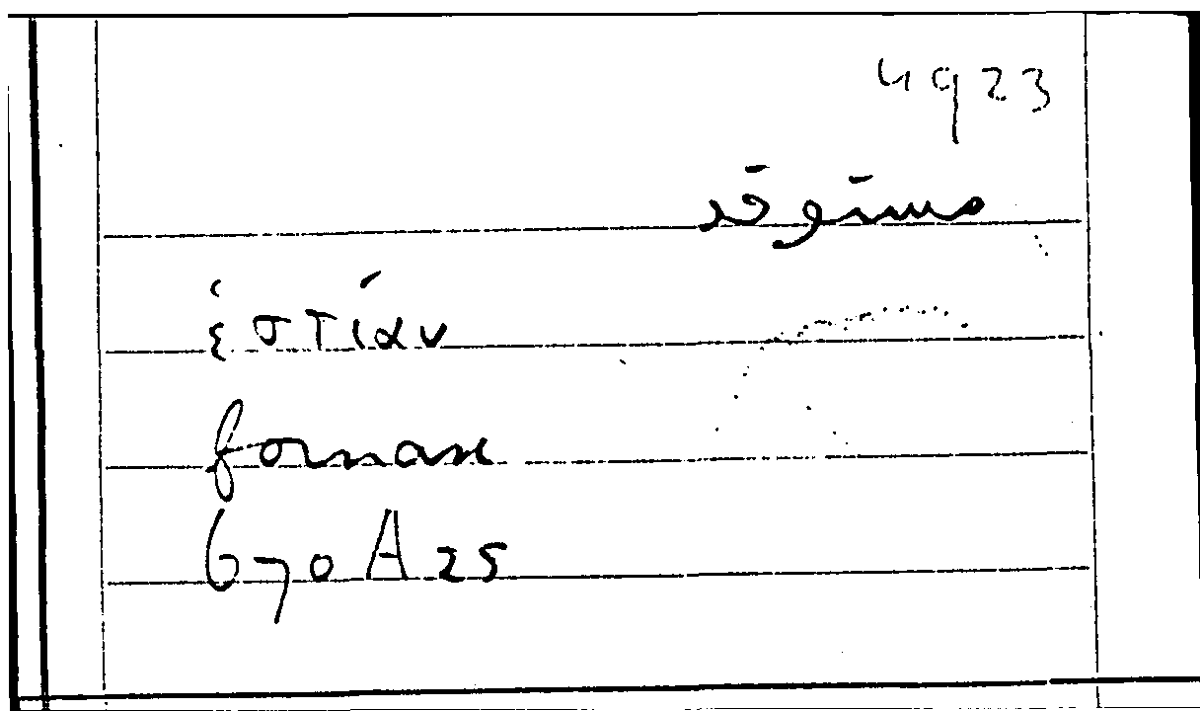 4923
مستوقد
ἑστίαν
fornax
670 A 25